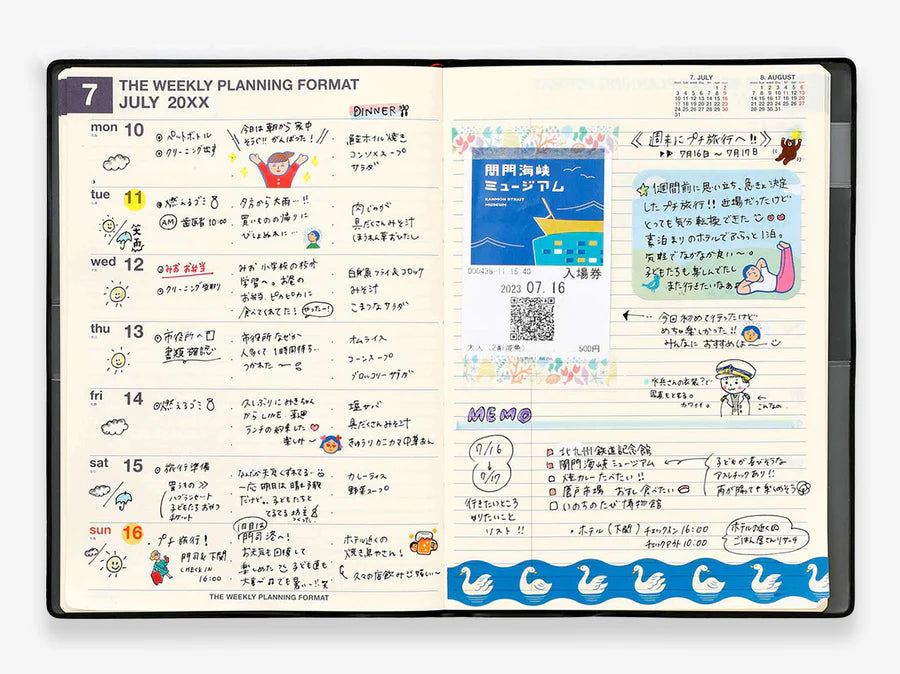 7
THE WEEKLY PLANNING FORMAT
JULY 20XX
DINNER
mon 10
ペットボトル
クリーニング出す
今日は朝から家中
そうじ!! がんばった!
鮭ホイル焼き
コンソメスープ
サラダ
tue 11
燃えるゴミ
AM 歯医者 10:00
夕方から大雨…!!
買いもの帰りに
びしょぬれに…
肉じゃが
具だくさんみそ汁
ほうれん草おひたし
wed 12
みお お弁当
クリーニング受取り
みお 小学校の校外
学習へ。お昼の
お弁当、ピカピカに
食べてくれてた!
やったー!
白身魚フライ&コロッケ
みそ汁
こまつなサラダ
thu 13
市役所へ
書類確認
市役所なぜか
人多くて1時間待ち…
つかれた
オムライス
コーンスープ
ブロッコリーサラダ
fri 14
燃えるゴミ
久しぶりにみきちゃん
からLINE。来週
ランチの約束した
楽しみ〜
塩サバ
具だくさんみそ汁
きゅうりカニカマ中華あえ
sat 15
旅行準備
買うもの
ハブラシセット
子どもたちおやつ
チケット
なんか天気くずれてる…
一応明日は晴れ予報
だけど。子どもたちと
てるてる坊主
つくった。
カレーライス
野菜スープ
sun 16
プチ旅行!
門司&下関
CHECK IN
16:00
1日目は
門司港へ!
お天気も回復して
楽しめた
子ども達も
大人
ホテル近くの
焼き鳥やさん!
久々の店飲み
嬉しい〜
THE WEEKLY PLANNING FORMAT
7. JULY
8. AUGUST
《週末にプチ旅行へ!!》
7月16日〜7月17日
1週間前に思い立ち、急きょ決定
したプチ旅行!! 近場だったけど
とっても気分転換できた
素泊まりのホテルでふらっと1泊。
気軽でなかなか良い〜。
子どもたちも楽しんでたし
また行きたいなぁ
関門海峡
ミュージアム
KANMON STRAIT
MUSEUM
入場券
2023 07.16
500円
今回初めて行ったけど
めちゃ楽しかった!!
みんなにおすすめしよ〜
水兵さんの衣装?で
写真もとれる。
カワイイ。
こんなの。
MEMO
7/16
↓
7/17
行きたいところ
知りたいこと
リスト!!
北九州鉄道記念館
関門海峡ミュージアム
焼カレーたべたい!!
唐戸市場 おすし食べたい
いのちのたび博物館
子どもが喜びそうな
アスレチックあり!!
雨が降っても楽しめそう
・ホテル(下関) チェックイン16:00
チェックアウト10:00
ホテルの近くの
ごはん屋さんリサーチ